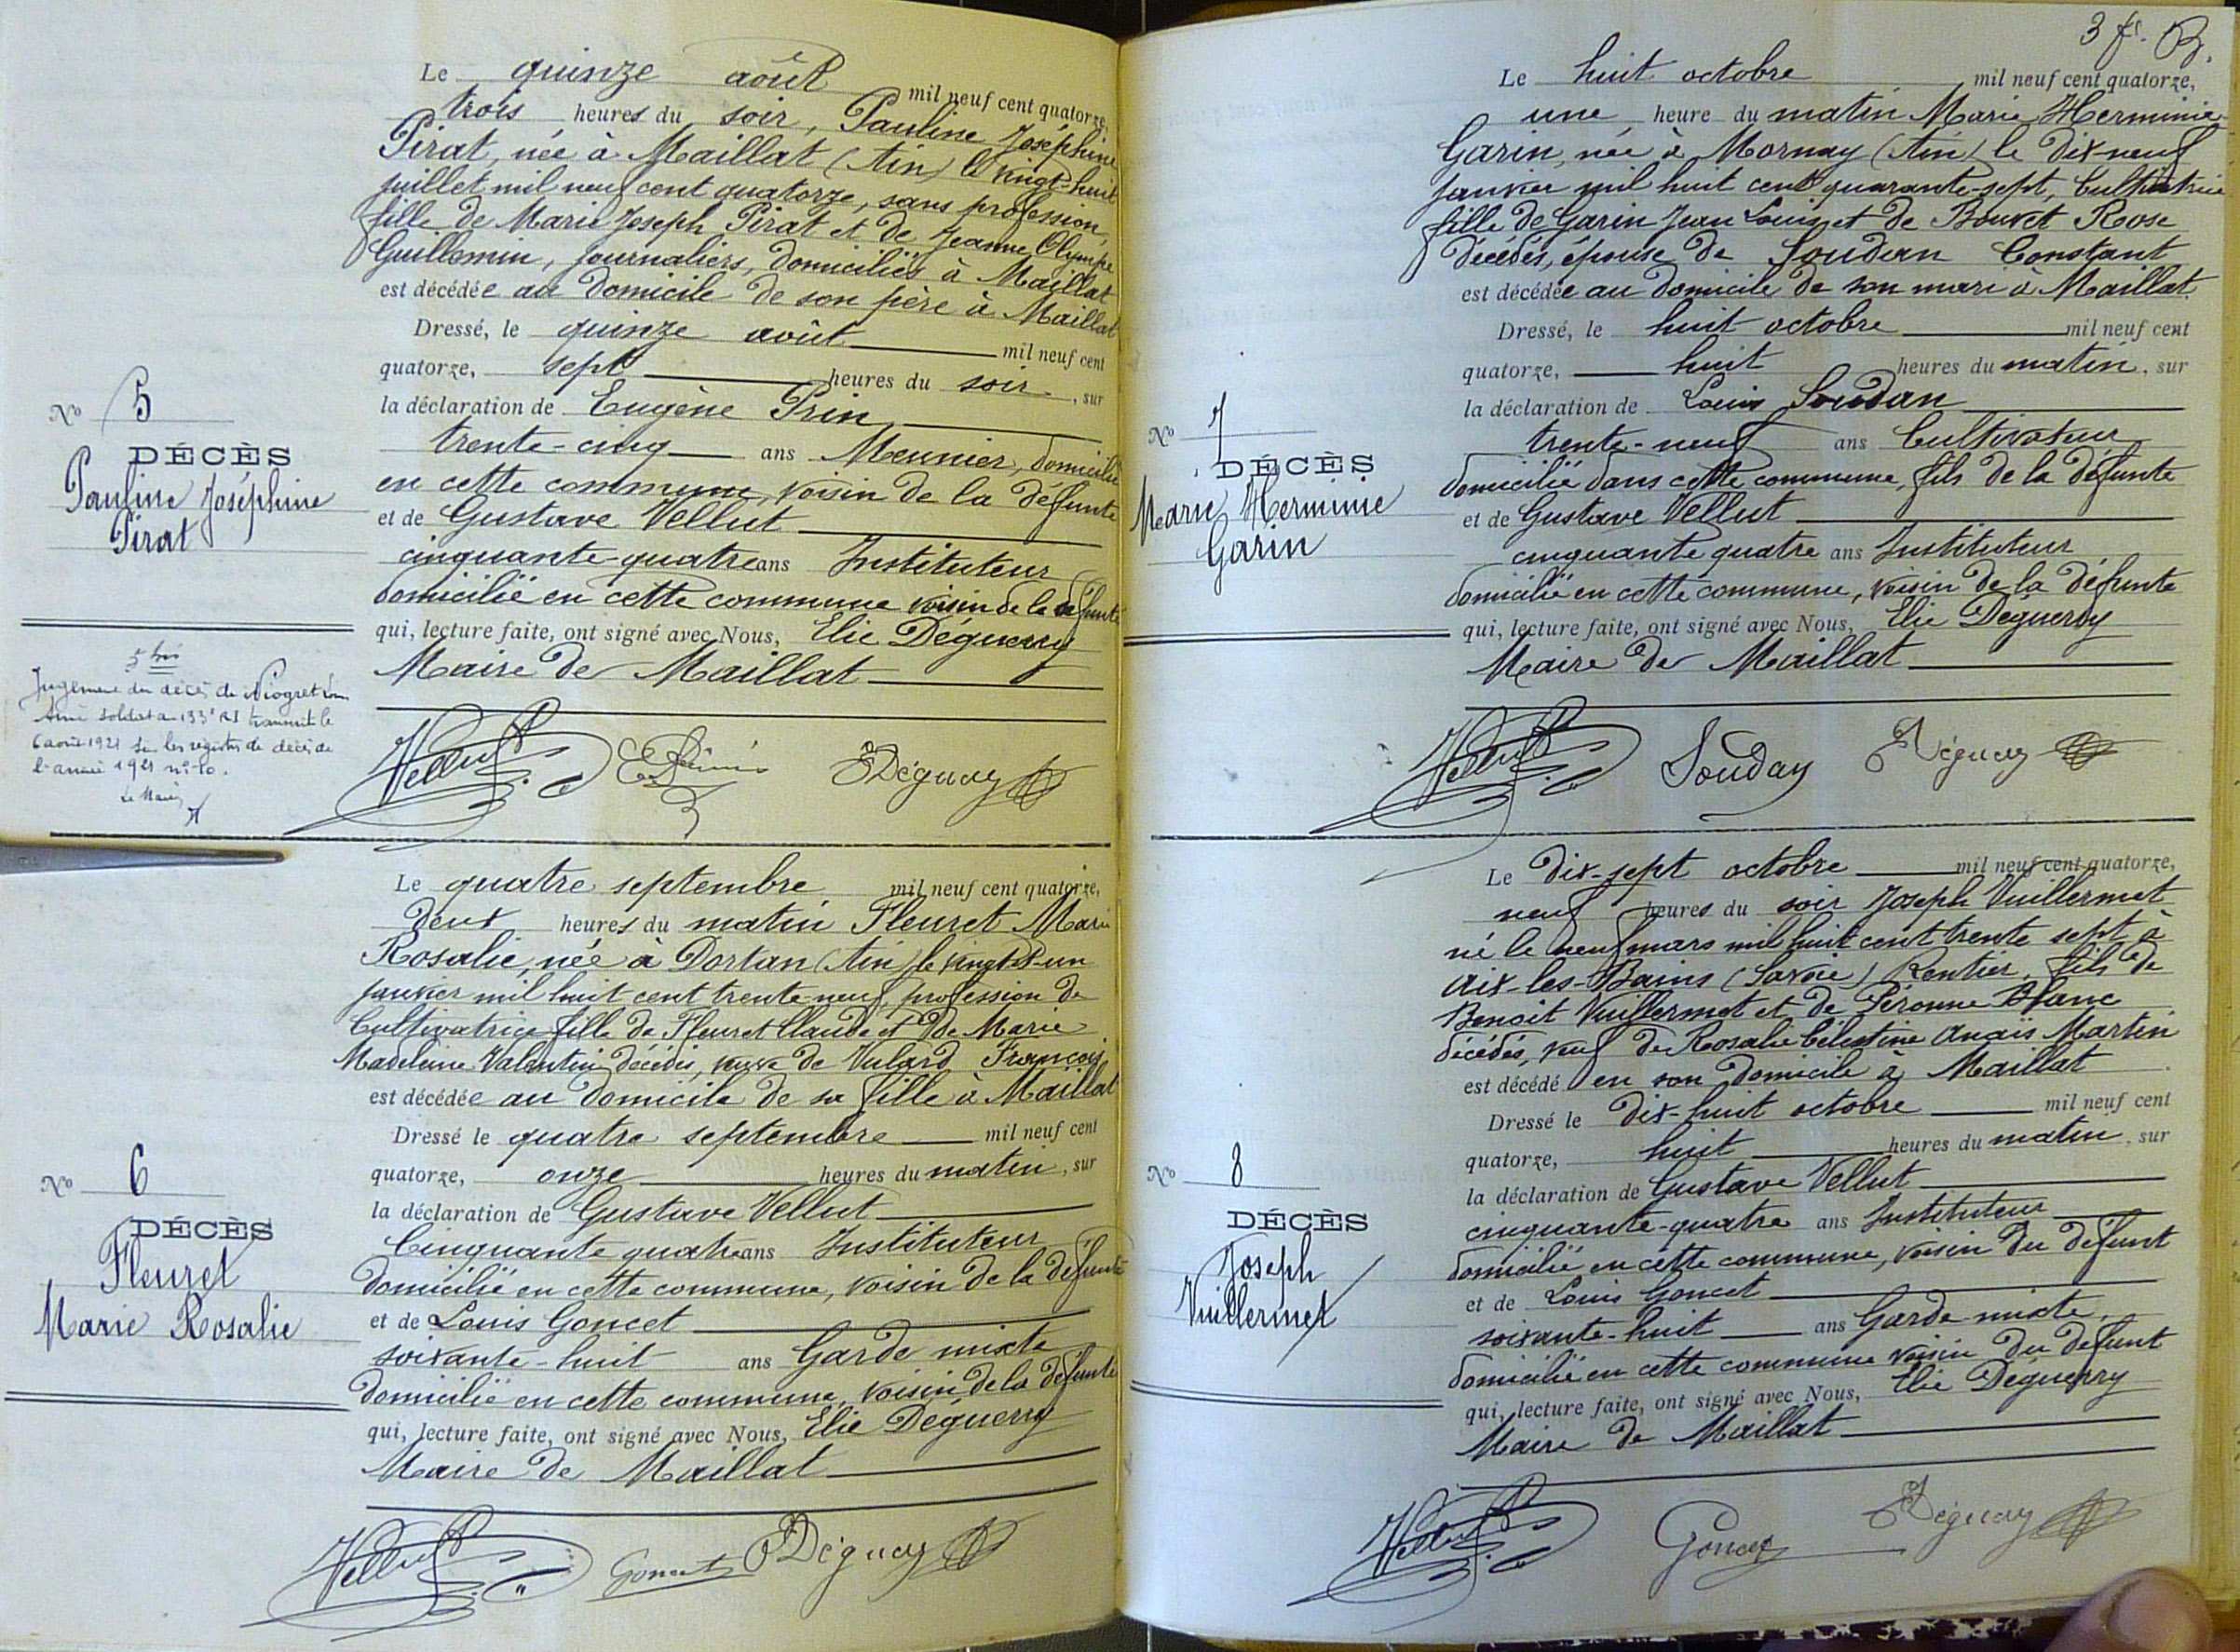 Le quinze août mil neuf cent quatorze,
trois heures du soir, Pauline Joséphine
Pirat, née à Maillat (Ain) le vingt-huit
juillet mil neuf cent quatorze, sans profession,
fille de Marie Joseph Pirat et de Jeanne Olympe
Guillemin, journaliers, domiciliés à Maillat
est décédée au domicile de son père à Maillat
Dressé, le quinze août mil neuf cent
quatorze, sept heures du soir, sur
la déclaration de Eugène Prin
trente-cinq ans Meunier, domicilié
en cette commune, voisin de la défunte
et de Gustave Vellut
cinquante-quatre ans Instituteur
domicilié en cette commune voisin de la défunte
qui, lecture faite, ont signé avec Nous, Elie Déguerry
Maire de Maillat
No 5
DÉCÈS
Pauline Joséphine
Pirat
5 bis
Jugement du décès de Niogret
Aimé soldat au 133e RI transcrit le
6 août 1921 sur les registres de décès de
l'année 1921 no 10.
Le Maire,
Vellut Déguerry
Le quatre septembre mil neuf cent quatorze,
deux heures du matin Fleuret Marie
Rosalie, née à Dortan (Ain) le vingt-et-un
janvier mil huit cent trente neuf, profession de
Cultivatrice fille de Fleuret Claude et de Marie
Madeleine Valentin décédés, veuve de Vulard François
est décédée au domicile de sa fille à Maillat
Dressé le quatre septembre mil neuf cent
quatorze, onze heures du matin, sur
la déclaration de Gustave Vellut
Cinquante quatre ans Instituteur
domicilié en cette commune, voisin de la défunte
et de Louis Goncet
soixante-huit ans Garde mixte
domicilié en cette commune, voisin de la défunte
qui, lecture faite, ont signé avec Nous, Elie Déguerry
Maire de Maillat
No 6
DÉCÈS
Fleuret
Marie Rosalie
Vellut Goncet Déguerry
3 f. B.
Le huit octobre mil neuf cent quatorze,
une heure du matin Marie Herminie
Garin, née à Mornay (Ain) le dix-neuf
janvier mil huit cent quarante-sept, Cultivatrice
fille de Garin Jean Louis et de Bouvet Rose
décédés, épouse de Soudan Constant
est décédée au domicile de son mari à Maillat.
Dressé, le huit octobre mil neuf cent
quatorze, huit heures du matin, sur
la déclaration de Louis Soudan
trente-neuf ans Cultivateur
domicilié dans cette commune, fils de la défunte
et de Gustave Vellut
cinquante quatre ans Instituteur
domicilié en cette commune, voisin de la défunte
qui, lecture faite, ont signé avec Nous, Elie Déguerry
Maire de Maillat
No 7
DÉCÈS
Marie Herminie
Garin
Vellut Soudan Déguerry
Le dix-sept octobre mil neuf cent quatorze,
neuf heures du soir Joseph Vuillermet
né le neuf mars mil huit cent trente sept à
Aix-les-Bains (Savoie) Rentier, fils de
Benoit Vuillermet et de Péronne Blanc
décédés, veuf de Rosalie Célestine Anaïs Martin
est décédé en son domicile à Maillat
Dressé le dix-huit octobre mil neuf cent
quatorze, huit heures du matin, sur
la déclaration de Gustave Vellut
cinquante-quatre ans Instituteur
domicilié en cette commune, voisin du défunt
et de Louis Goncet
soixante-huit ans Garde-mixte,
domicilié en cette commune voisin du défunt
qui, lecture faite, ont signé avec Nous, Elie Déguerry
Maire de Maillat
No 8
DÉCÈS
Joseph
Vuillermet
Vellut Goncet Déguerry